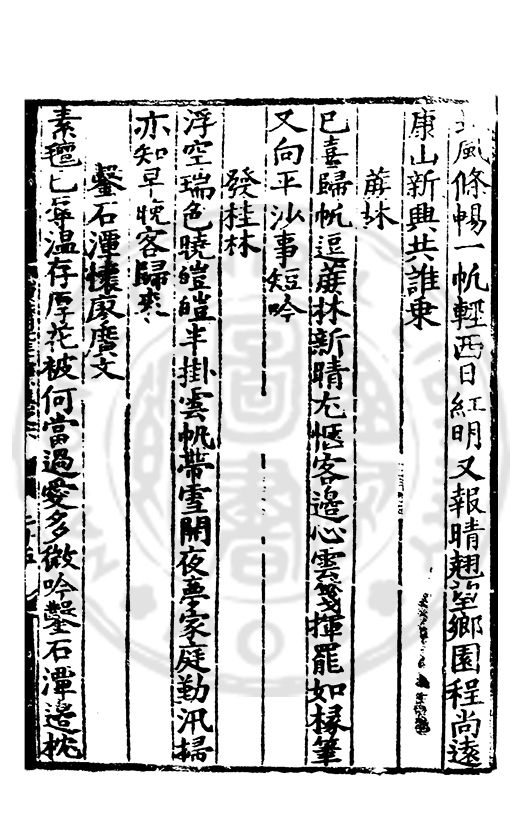 風條暢一帆輕西日紅明又報晴翹望鄉園程尚遠
康山新興共誰乗
蔴林
已喜歸帆逗蔴林新晴尤愜客邉心雲箋揮罷如椽筆
又向平沙事短吟
發桂林
浮空瑞色曉皚皚半掛雲帆帶雪開夜夢家庭勤汛掃
亦知早晚客歸来
鑿石潭懷廖廣文
素氊已辱温存厚花被何當過愛多微吟鑿石潭邉枕